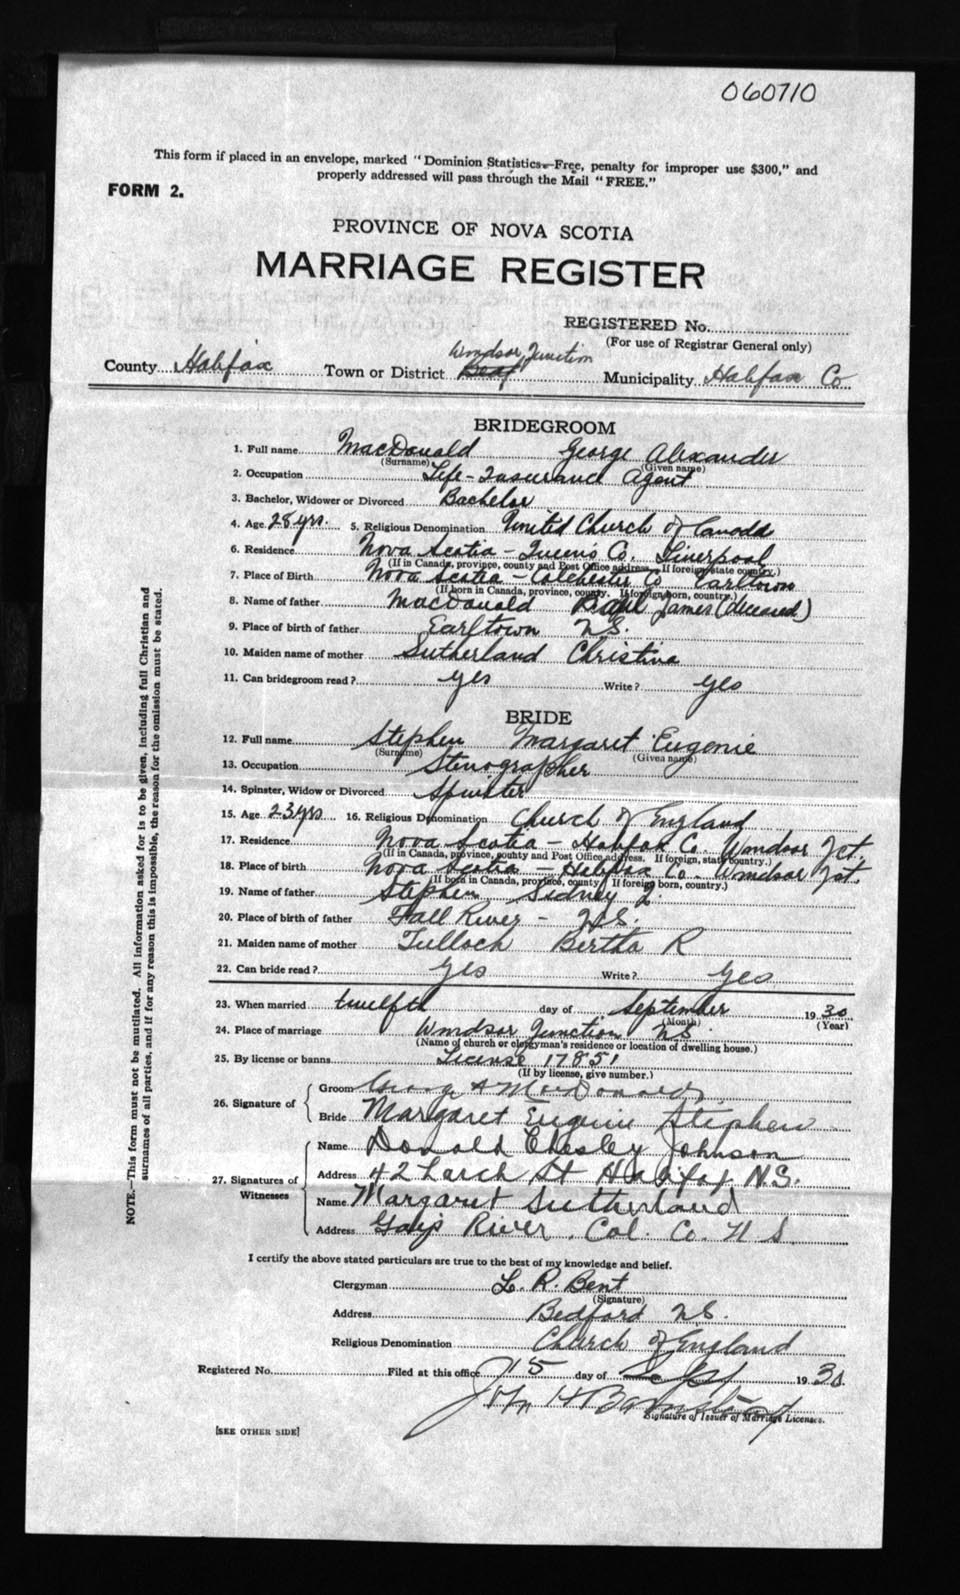 060710
This form if placed in an envelope, marked "Dominion Statistics—Free, penalty for improper use $300," and
properly addressed will pass through the Mail "FREE."
FORM 2.
PROVINCE OF NOVA SCOTIA
MARRIAGE REGISTER
REGISTERED No.
(For use of Registrar General only)
Windsor Junction
County Halifax Town or District Municipality Halifax Co
BRIDEGROOM
1. Full name MacDonald George Alexander
(Surname) (Given name)
2. Occupation Life-Insurance Agent
3. Bachelor, Widower or Divorced Bachelor
4. Age 28 yrs. 5. Religious Denomination United Church of Canada
6. Residence Nova Scotia - Queens Co. Liverpool
(If in Canada, province, county and Post Office address. If foreign state country.)
7. Place of Birth Nova Scotia - Colchester Co Earltown
(If born in Canada, province, county. If foreign born, country.)
8. Name of father MacDonald James (deceased)
9. Place of birth of father Earltown N.S.
10. Maiden name of mother Sutherland Christina
11. Can bridegroom read? yes Write? yes
BRIDE
12. Full name Stephen Margaret Eugenie
(Surname) (Given name)
13. Occupation Stenographer
14. Spinster, Widow or Divorced Spinster
15. Age 23 yrs 16. Religious Denomination Church of England
17. Residence Nova Scotia - Halifax Co. Windsor Jct.
(If in Canada, province, county and Post Office address. If foreign, state country.)
18. Place of birth Nova Scotia - Halifax Co. Windsor Jct.
(If born in Canada, province, county. If foreign born, country.)
19. Name of father Stephen, Sidney
20. Place of birth of father Fall River - N.S.
21. Maiden name of mother Tulloch Bertha R
22. Can bride read? yes Write? yes
23. When married twelfth day of September 1930
(Month) (Year)
24. Place of marriage Windsor Junction NS
(Name of church or clergyman's residence or location of dwelling house.)
25. By license or banns License 17851
(If by license, give number.)
26. Signature of
Groom George A MacDonald
Bride Margaret Eugenie Stephen
27. Signatures of Witnesses
Name Donald Chesley Johnson
Address 42 Larch St Halifax N.S.
Name Margaret Sutherland
Address River, Col. Co. N S
I certify the above stated particulars are true to the best of my knowledge and belief.
Clergyman L. R. Bent
(Signature)
Address Bedford N.S.
Religious Denomination Church of England
Registered No. Filed at this office 15 day of 1930.
John H
Signature of Issuer of Marriage Licenses.
[SEE OTHER SIDE]
NOTE.—This form must not be mutilated. All information asked for is to be given, including full Christian and
surnames of all parties, and if for any reason this is impossible, the reason for the omission must be stated.